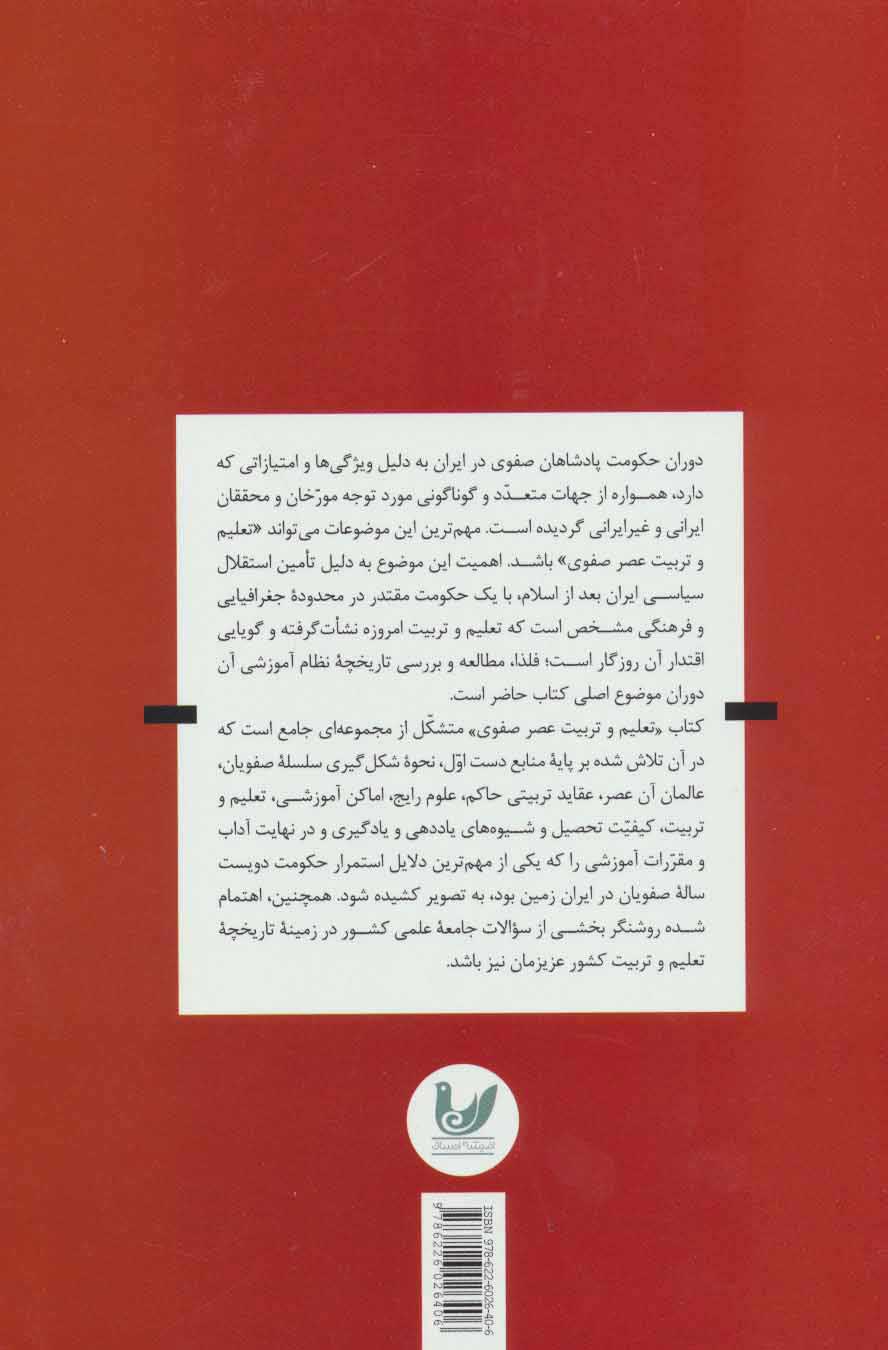 دوران حکومت پادشاهان صفوی در ایران به دلیل ویژگی‌ها و امتیازاتی که
دارد، همـــواره از جهات متعـــدّد و گوناگونی مورد توجه مورّخان و محققان
ایرانی و غیرایرانی گردیده اســت. مهم‌ترین این موضوعات می‌تواند «تعلیم
و تربیت عصر صفوی» باشــد. اهمیت این موضوع به دلیل تأمین استقلال
سیاســی ایران بعد از اسلام، با یک حکومت مقتدر در محدودهٔ جغرافیایی
و فرهنگی مشــخص است که تعلیم و تربیت امروزه نشأت‌گرفته و گویایی
اقتدار آن روزگار اســت؛ فلذا، مطالعه و بررسی تاریخچهٔ نظام آموزشی آن
دوران موضوع اصلی کتاب حاضر است.
کتاب «تعلیم و تربیت عصر صفوی» متشکّل از مجموعه‌ای جامع است که
در آن تلاش شده بر پایهٔ منابع دست اوّل، نحوهٔ شکل‌گیری سلسلهٔ صفویان،
عالمان آن عصر، عقاید تربیتی حاکم، علوم رایج، اماکن آموزشــی، تعلیم و
تربیت، کیفیّت تحصیل و شــیوه‌های یاددهی و یادگیری و در نهایت آداب
و مقرّرات آموزشی را که یکی از مهم‌ترین دلایل استمرار حکومت دویست
سالهٔ صفویان در ایران زمین بود، به تصویر کشیده شود. همچنین، اهتمام
شــده روشنگر بخشی از سؤالات جامعهٔ علمی کشور در زمینهٔ تاریخچهٔ
تعلیم و تربیت کشور عزیزمان نیز باشد.
اندیشه احسان
ISBN 978-622-6026-40-6
9 786226 026406